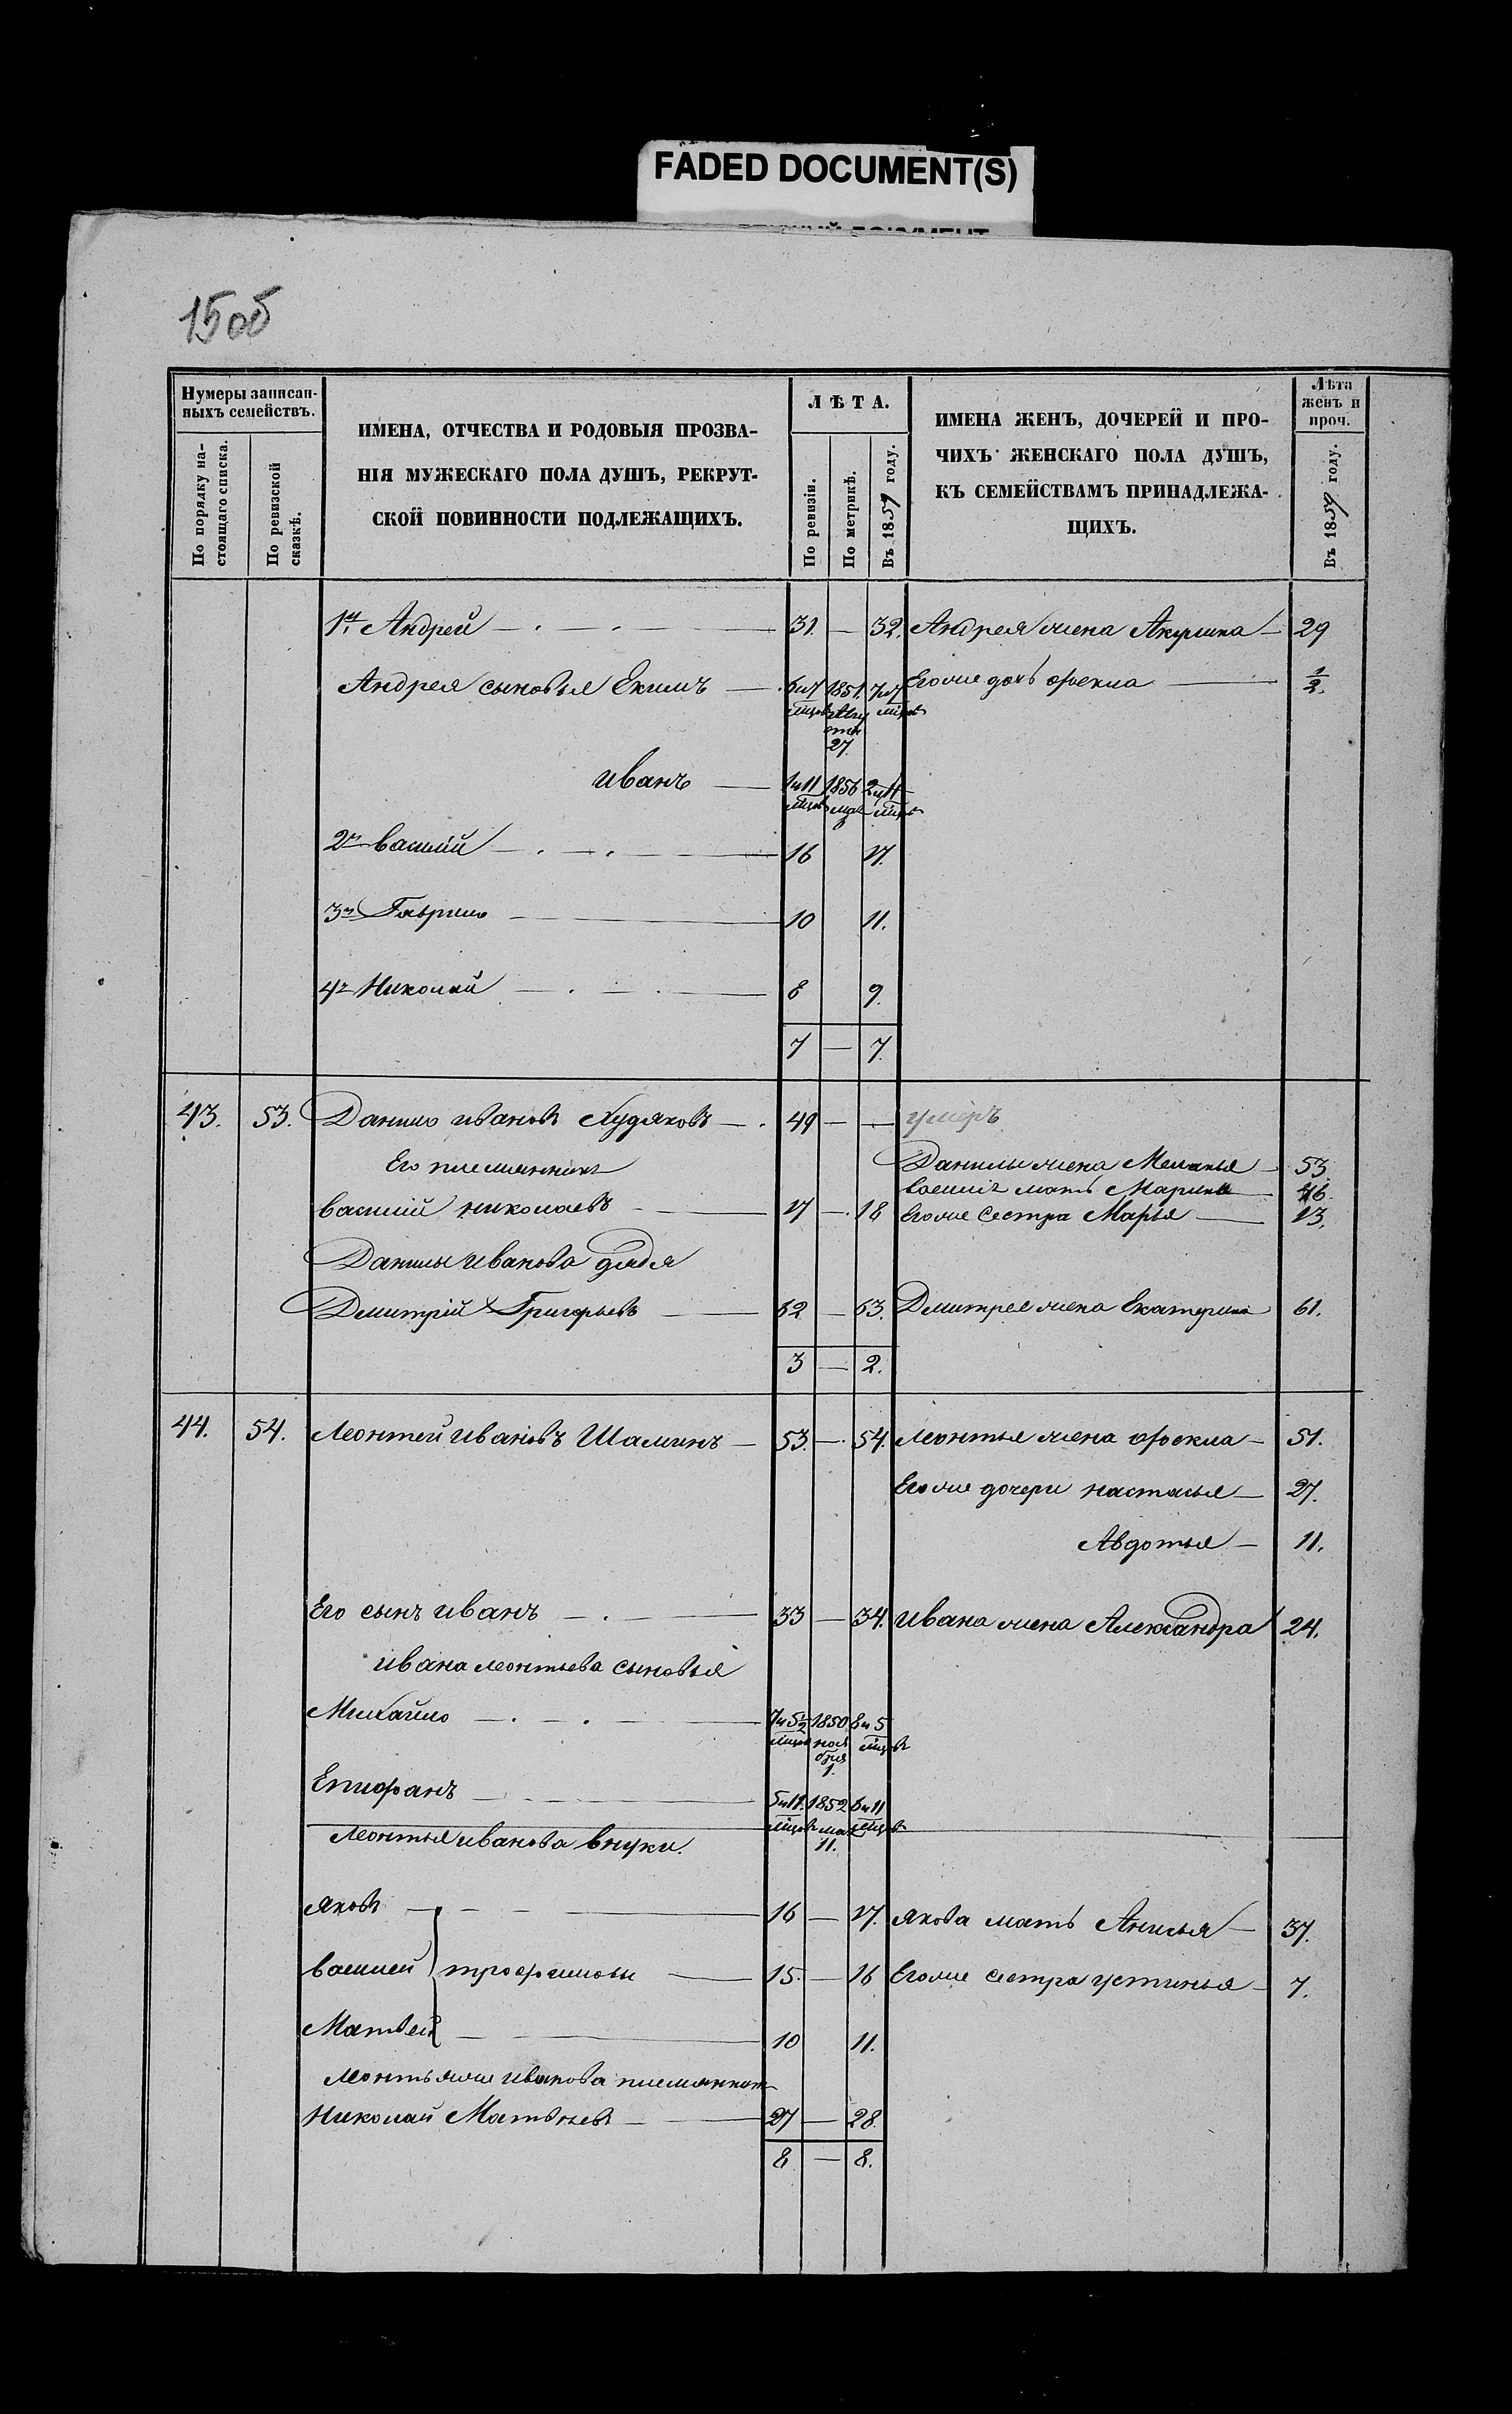 FADED DOCUMENT(S)
15об
Нумеры записан-
ныхъ семействъ.
По порядку на-
стоящаго списка.
По ревизской
сказкѣ.
ИМЕНА, ОТЧЕСТВА И РОДОВЫЯ ПРОЗВА-
НІЯ МУЖЕСКАГО ПОЛА ДУШЪ, РЕКРУТ-
СКОЙ ПОВИННОСТИ ПОДЛЕЖАЩИХЪ.
ЛѢТА.
По ревизіи.
По метрикѣ.
Въ 1859 году.
ИМЕНА ЖЕНЪ, ДОЧЕРЕЙ И ПРО-
ЧИХЪ ЖЕНСКАГО ПОЛА ДУШЪ,
КЪ СЕМЕЙСТВАМЪ ПРИНАДЛЕЖА-
ЩИХЪ.
Лѣта
женъ и
проч.
Въ 1859 году.
1й Андрей — 31. — 32. Андрея жена Акулина — 29
Андрея сыновья Екимъ — 6и7 1851 7и7 Егоже дочь Фекла — 1/2.
мцов Авгу мцов
ста
27.
Иванъ — 1и11 1856 2и11
мцов мая мцов
2й Василій — 16 17.
3й Гаврило — 10 11.
4й Николай — 8 9.
7 — 7.
43. 53. Данило Ивановъ Худяковъ — 49 — — умеръ
Его племянникъ Данилы жена Меланья — 53
Василія мать Марина — 46.
Василій Николаевъ — 17 — 18 Егоже сестра Марья — 13.
Данилы Иванова дядя
Дмитрій Григорьевъ — 62 — 63. Дмитрея жена Екатерина 61.
3 — 2.
44. 54. Леонтей Ивановъ Шаминъ — 53. — 54. Леонтья жена Фекла — 51.
Егоже дочери Настасья — 27.
Авдотья — 11.
Его сынъ Иванъ — 33 — 34. Ивана жена Александра 24.
Ивана Леонтьева сыновья
Михайло — 7и5½ 1850 8и5
мцов ноя мцов
бря
1.
Епифанъ — 5и11. 1852 6и11
мцов мая мцов
11.
Леонтья Иванова внуки.
Яковъ — 16 — 17. Якова мать Анисья — 37.
Василей Трофимовы — 15. — 16 Егоже сестра Устинья — 7.
Матвей — 10 11.
Леонтья же Иванова племянникъ
Николай Матвѣевъ — 27 — 28.
8 — 8.